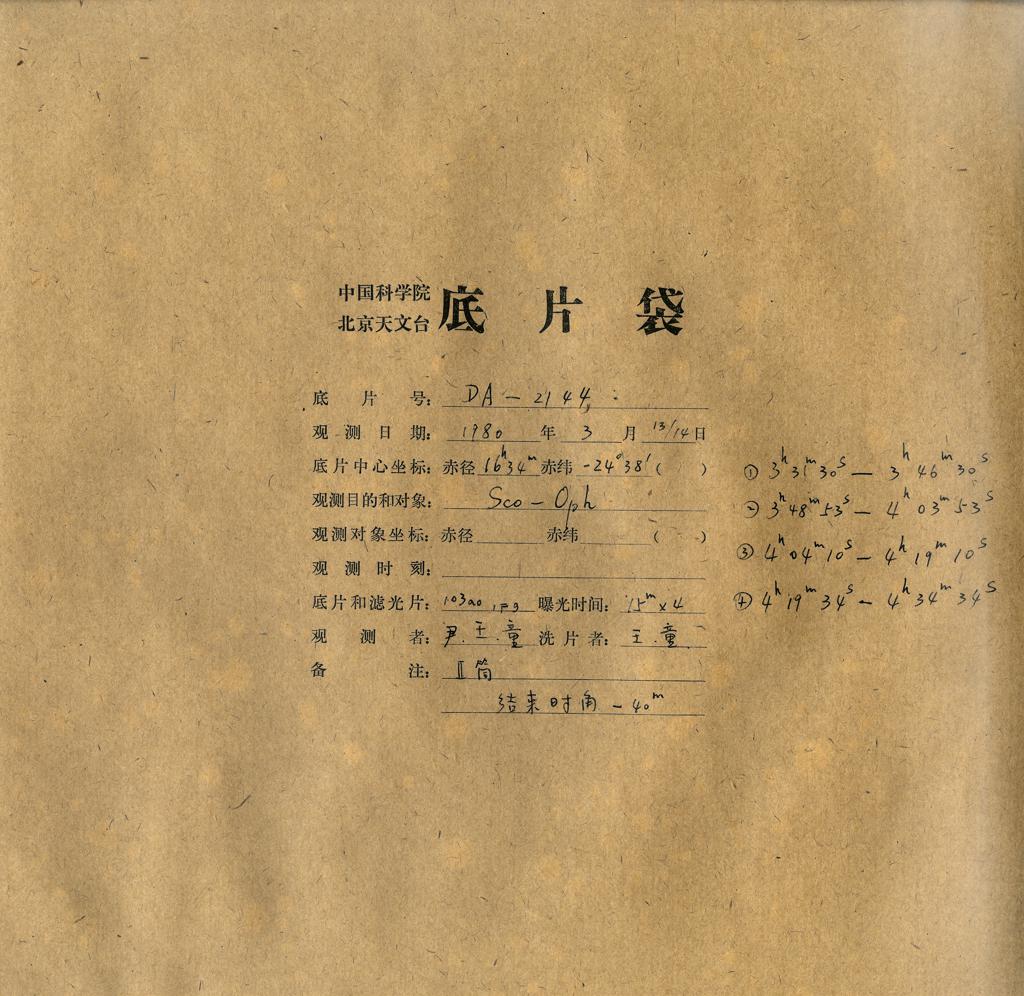 中国科学院
北京天文台
底片袋
底片号: DA-2144
观测日期: 1980年3月13/14日
底片中心坐标: 赤径16ʰ34ᵐ赤纬-24°38′( )
观测目的和对象: Sco-Oph
观测对象坐标: 赤径 赤纬 ( )
观测时刻:
底片和滤光片: 103aO, 曝光时间: 15ᵐ×4
观测者: 尹.王.童 洗片者: 王.童.
备注: II筒
结束时角-40ᵐ
① 3ʰ31ᵐ30ˢ - 3ʰ46ᵐ30ˢ
② 3ʰ48ᵐ53ˢ - 4ʰ03ᵐ53ˢ
③ 4ʰ04ᵐ10ˢ - 4ʰ19ᵐ10ˢ
④ 4ʰ19ᵐ34ˢ - 4ʰ34ᵐ34ˢ